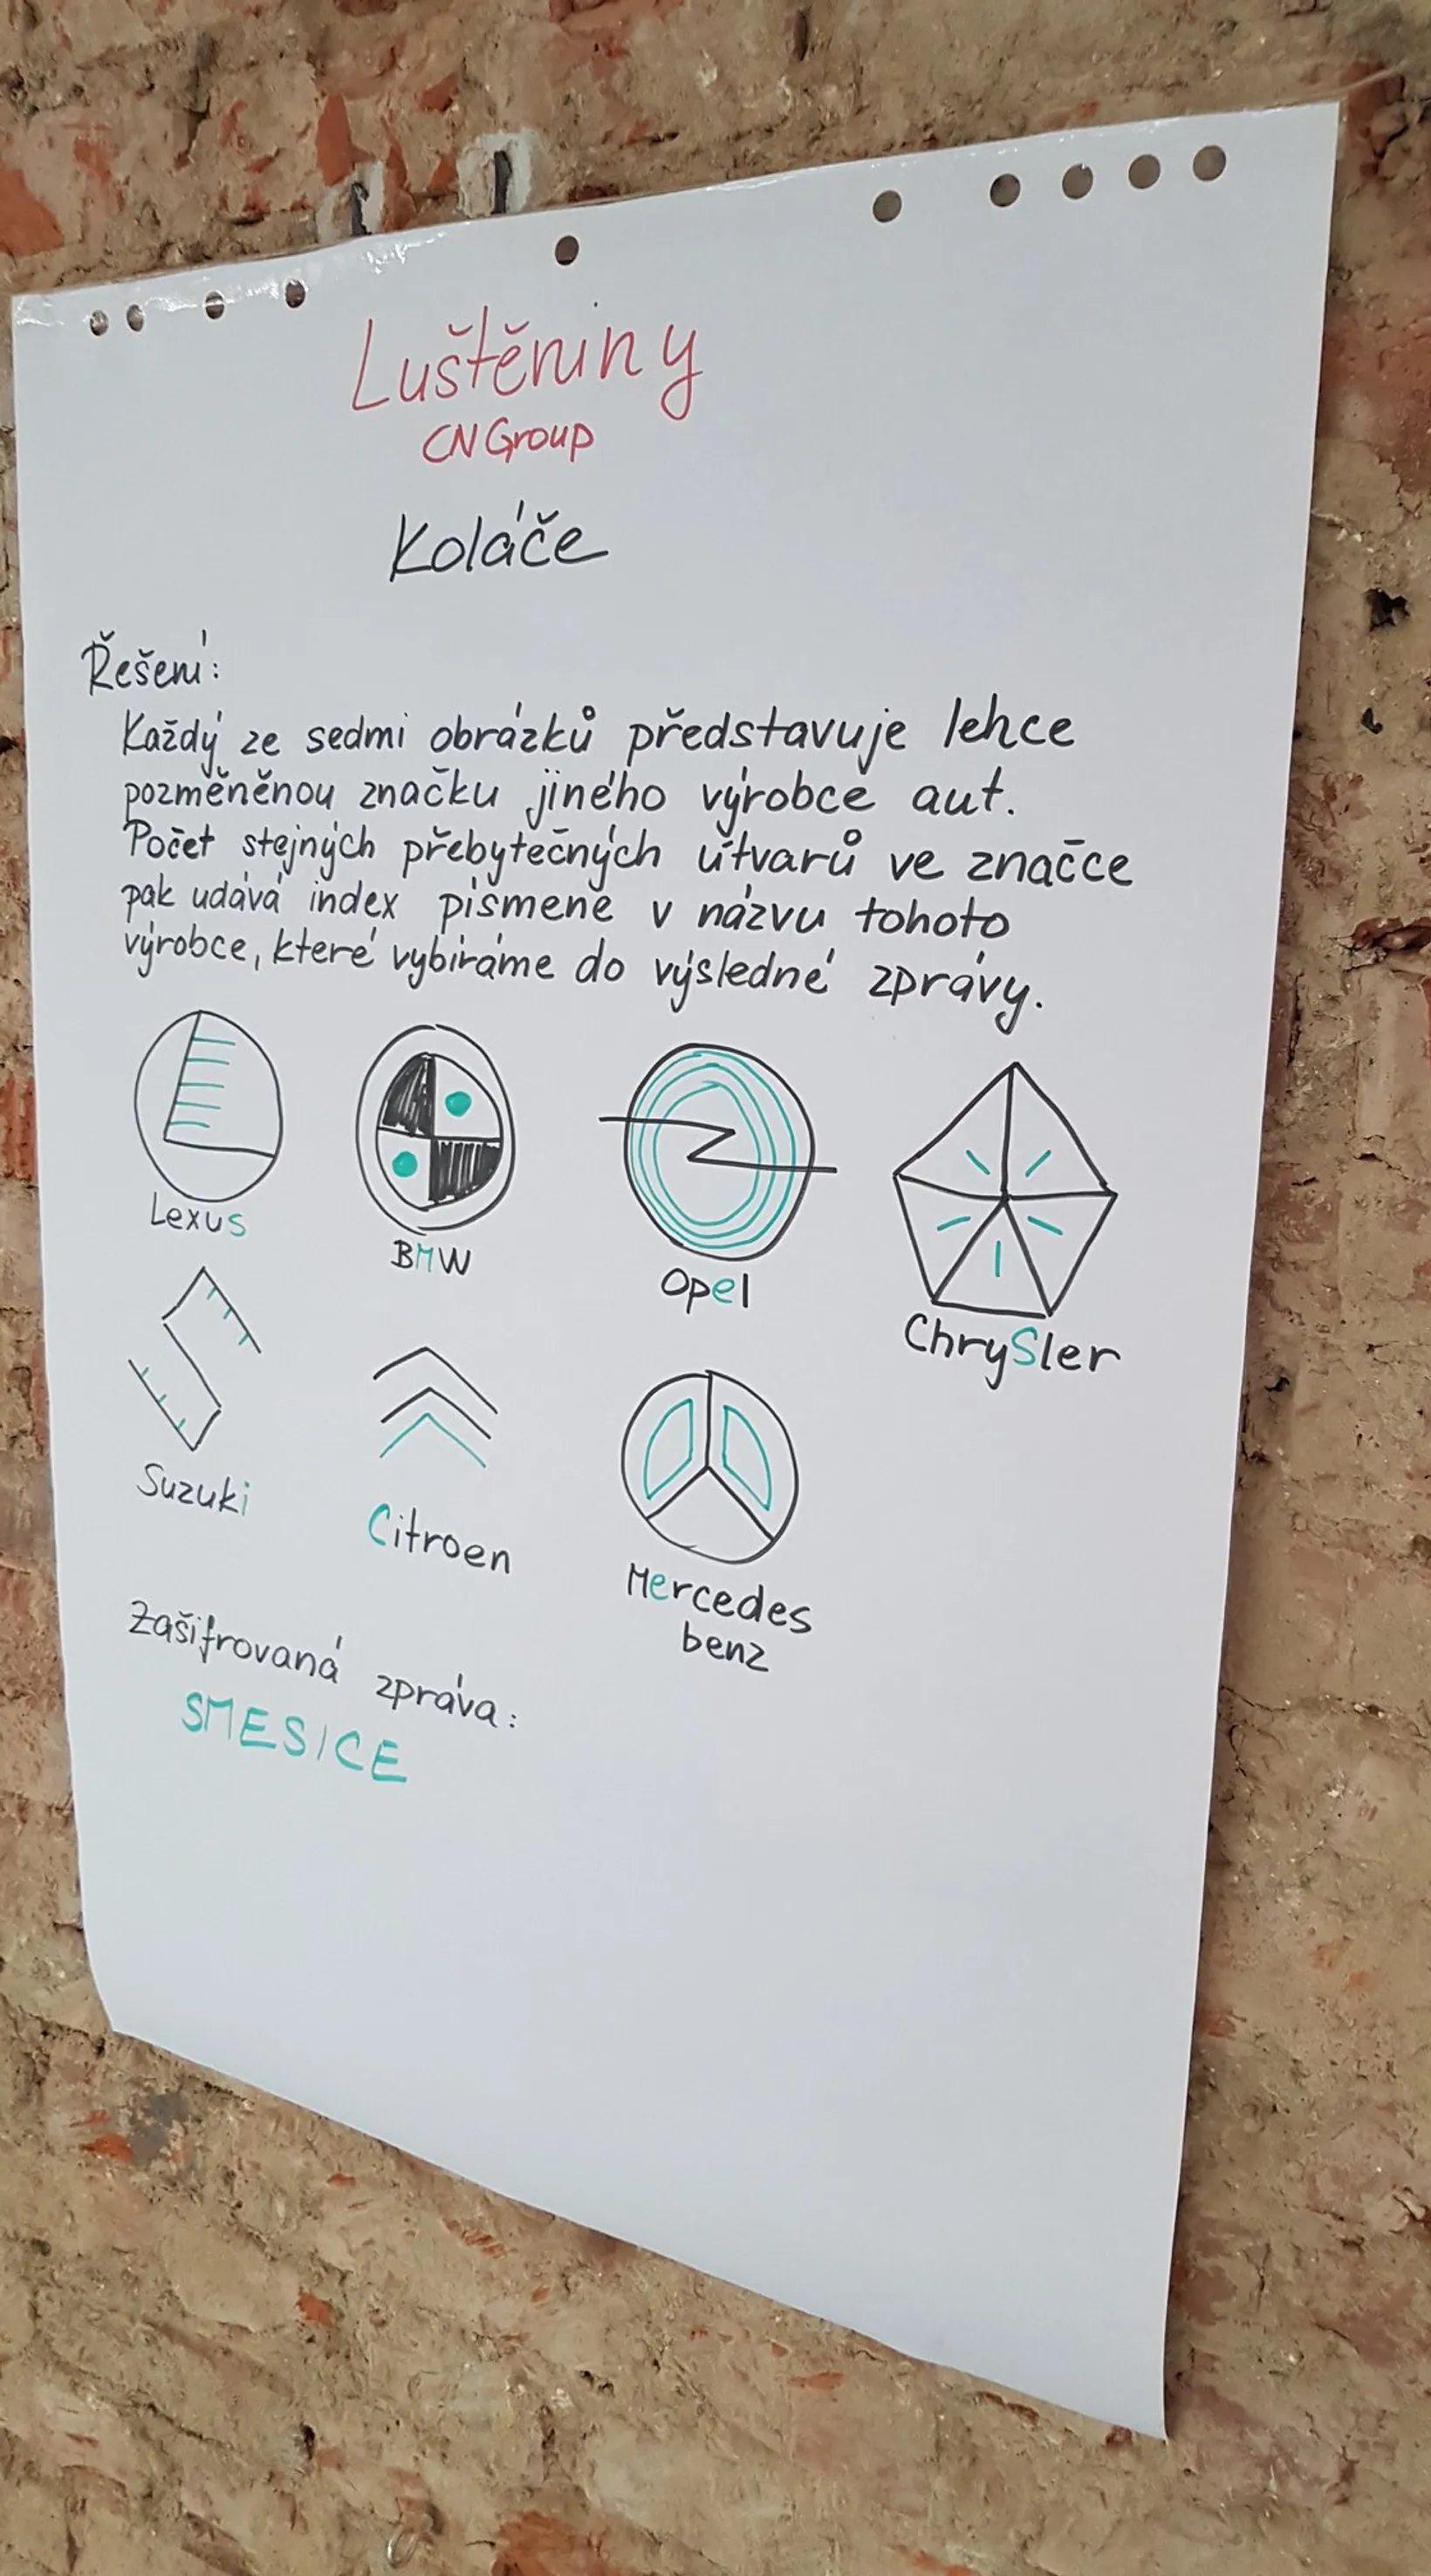 Luštěniny
CN Group
Koláče
Řešení:
Každý ze sedmi obrázků představuje lehce
pozměněnou značku jiného výrobce aut.
Počet stejných přebytečných útvarů ve značce
pak udává index písmene v názvu tohoto
výrobce, které vybíráme do výsledné zprávy.
Lexus
BMW
Opel
ChrySler
Suzuki
Citroen
Mercedes
benz
Zašifrovaná zpráva:
SMESICE